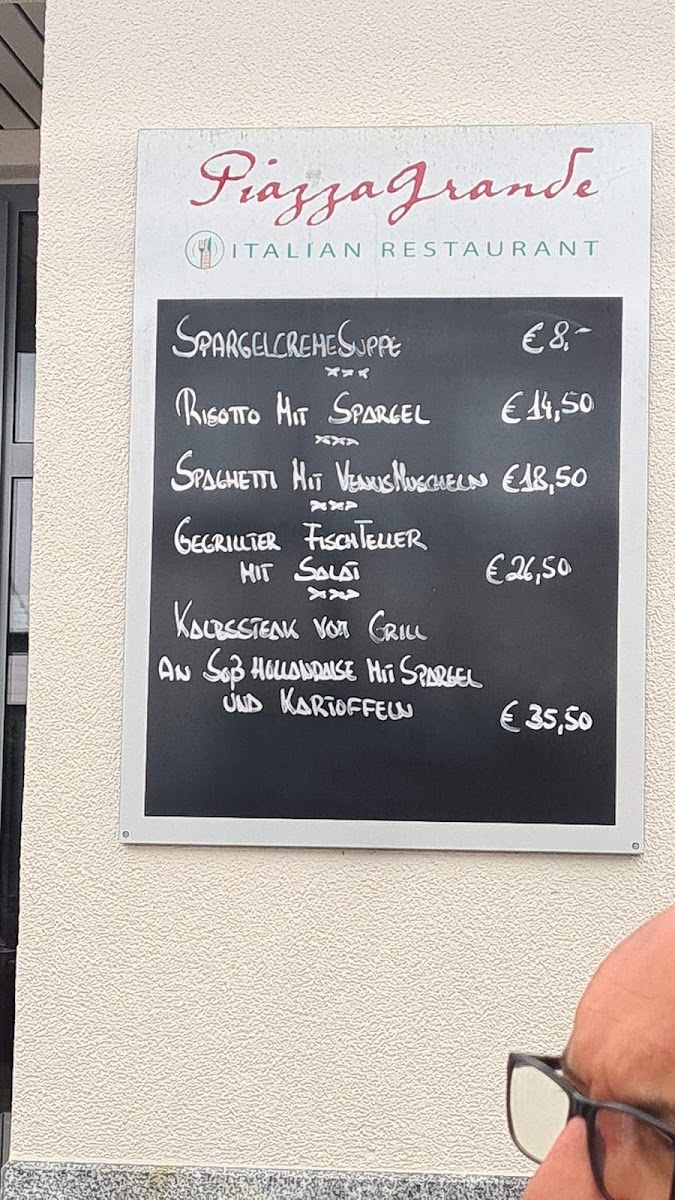 PiazzaGrande
ITALIAN RESTAURANT
SPARGELCREMESUPPE €8,-
RISOTTO MIT SPARGEL €14,50
SPAGHETTI MIT VENUSMUSCHELN €18,50
GEGRILLTER FISCHTELLER
MIT SALAT €26,50
KALBSSTEAK VOM GRILL
AN SOß HOLLANDAISE MIT SPARGEL
UND KARTOFFELN €35,50